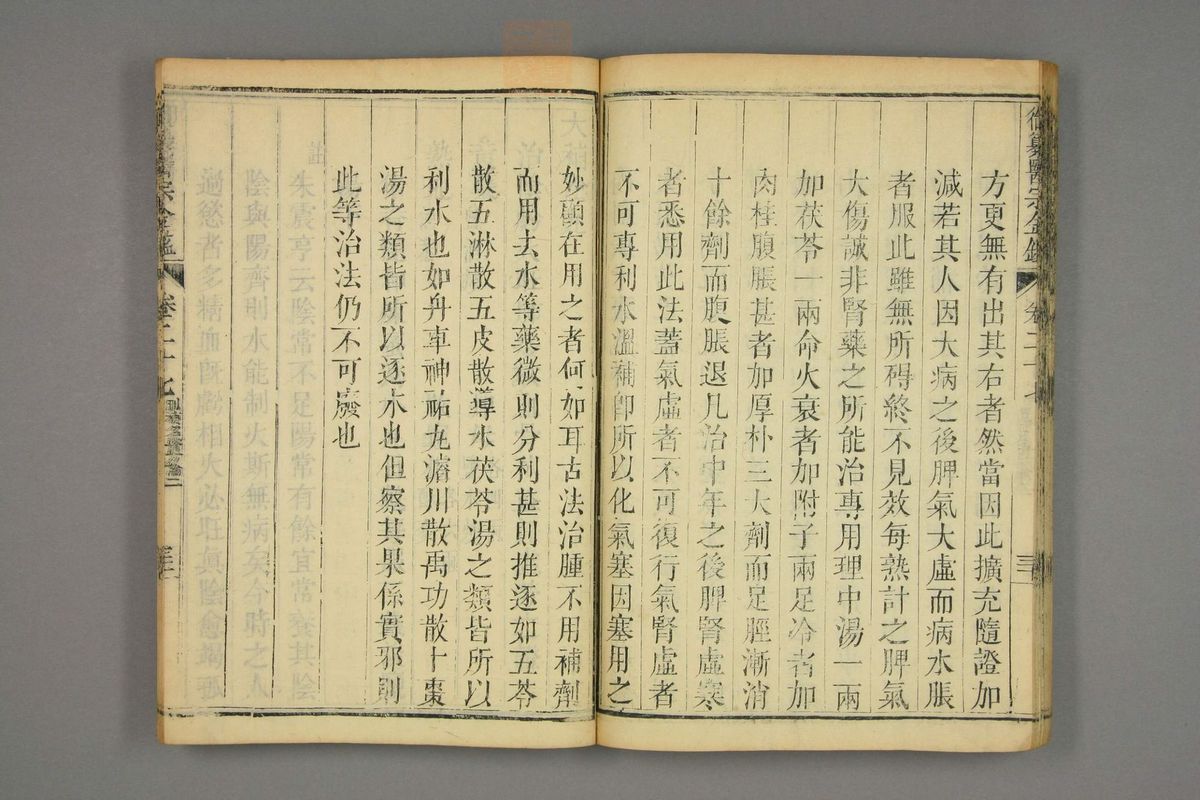 御纂醫宗金鑑 卷二十七
方更無有出其右者然當因此擴充隨證加
減若其人因大病之後脾氣大虛而病水脹
者服此雖無所碍終不見效每熟計之脾氣
大傷誠非腎藥之所能治專用理中湯一兩
加茯苓一兩命火衰者加附子兩足冷者加
肉桂腹脹甚者加厚朴三大劑而足脛漸消
十餘劑而腹脹退凡治中年之後脾腎虛寒
者悉用此法蓋氣虛者不可復行氣腎虛者
不可專利水溫補卽所以化氣塞因塞用之
妙顯在用之者何如耳古法治腫不用補劑
而用去水等藥微則分利甚則推逐如五苓
散五淋散五皮散導水茯苓湯之類皆所以
利水也如舟車神祐丸濬川散禹功散十棗
湯之類皆所以逐水也但察其果係實邪則
此等治法仍不可廢也
宗金鑑 卷二十七